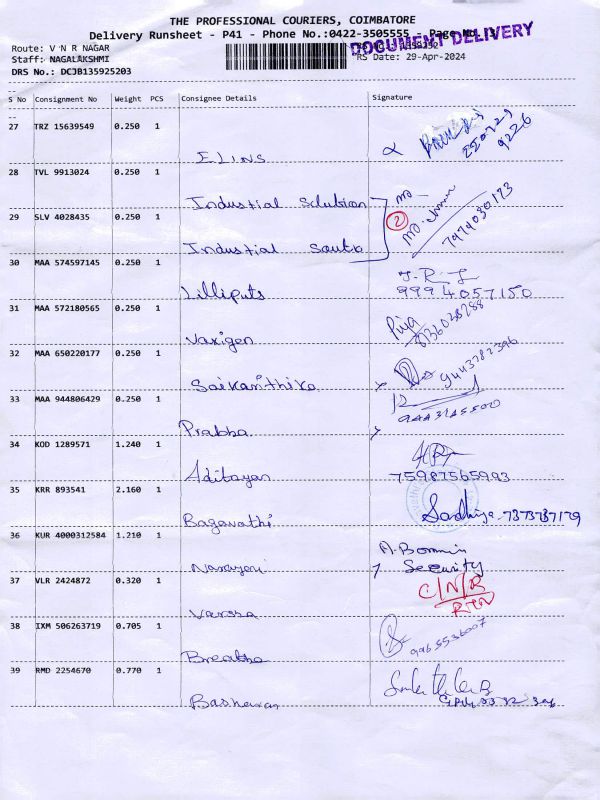 THE PROFESSIONAL COURIERS, COIMBATORE
Delivery Runsheet - P41 - Phone No.:0422-3505555 - Page No.
DOCUMENT DELIVERY
Route: V N R NAGAR
Staff: NAGALAKSHMI
RS Date: 29-Apr-2024
DRS No.: DCJB135925203
S No Consignment No Weight PCS Consignee Details Signature
27 TRZ 15639549 0.250 1
ELINS
28 TVL 9913024 0.250 1
Industial Solution
29 SLV 4028435 0.250 1
2
7974030173
Industial
30 MAA 574597145 0.250 1
Lilliputs
J.R.L
9994057150
31 MAA 572180565 0.250 1
Vaxigen
32 MAA 650220177 0.250 1
9443782396
Saikanthika
33 MAA 944806429 0.250 1
Prabha
34 KOD 1289571 1.240 1
Aditayan
75987565993
35 KRR 893541 2.160 1
Sadhiya-7373737179
Bagavathi
36 KUR 4000312584 1.210 1
Security
Narayani
37 VLR 2424872 0.320 1
C/N/R
RTN
Varsha
38 IXM 506263719 0.705 1
9965536007
Breatha
39 RMD 2254670 0.770 1
Basharan